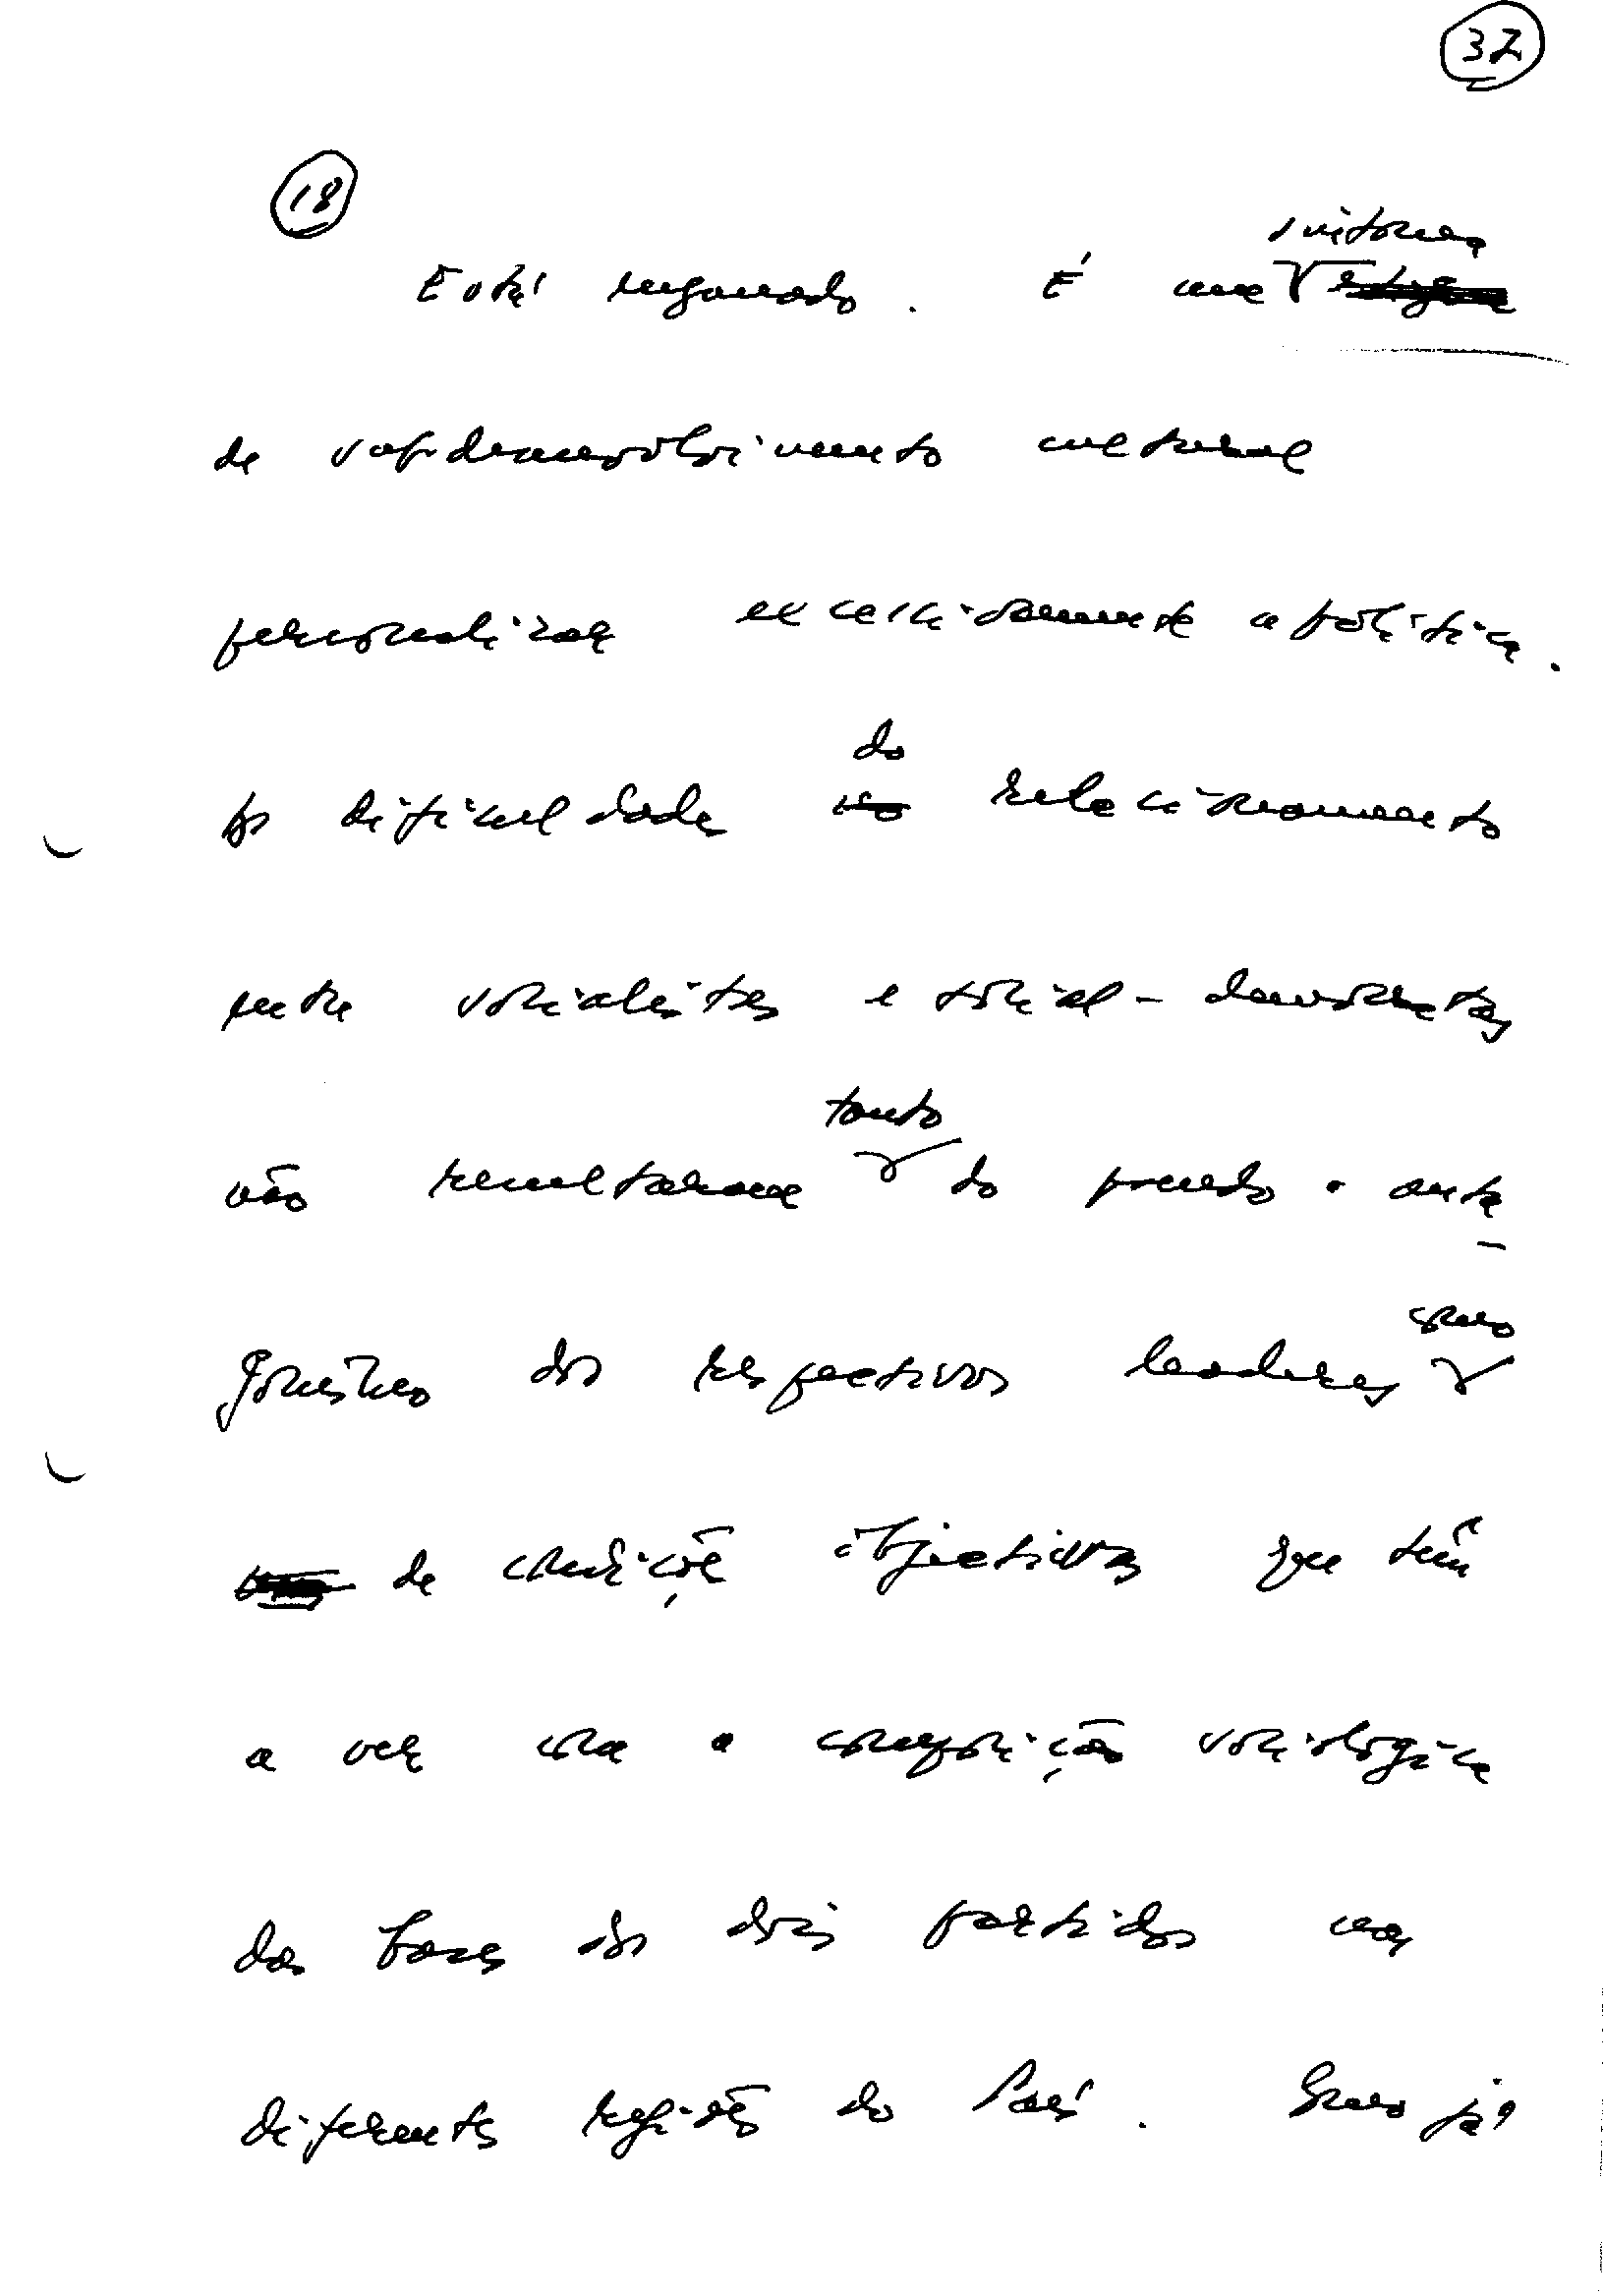 37
18
sintoma
Está enganado. É um
de subdesenvolvimento cultural
personalizar excessivamente a política.
do
As dificuldades no relacionamento
entre socialistas e social-democratas
tanto
não resultaram do prurido o anta
como
gonismo dos respectivos leaders
de condições objectivas que têm
a ver com a composição sociológica
das bases dos dois partidos nas
diferentes regiões do País. Como já